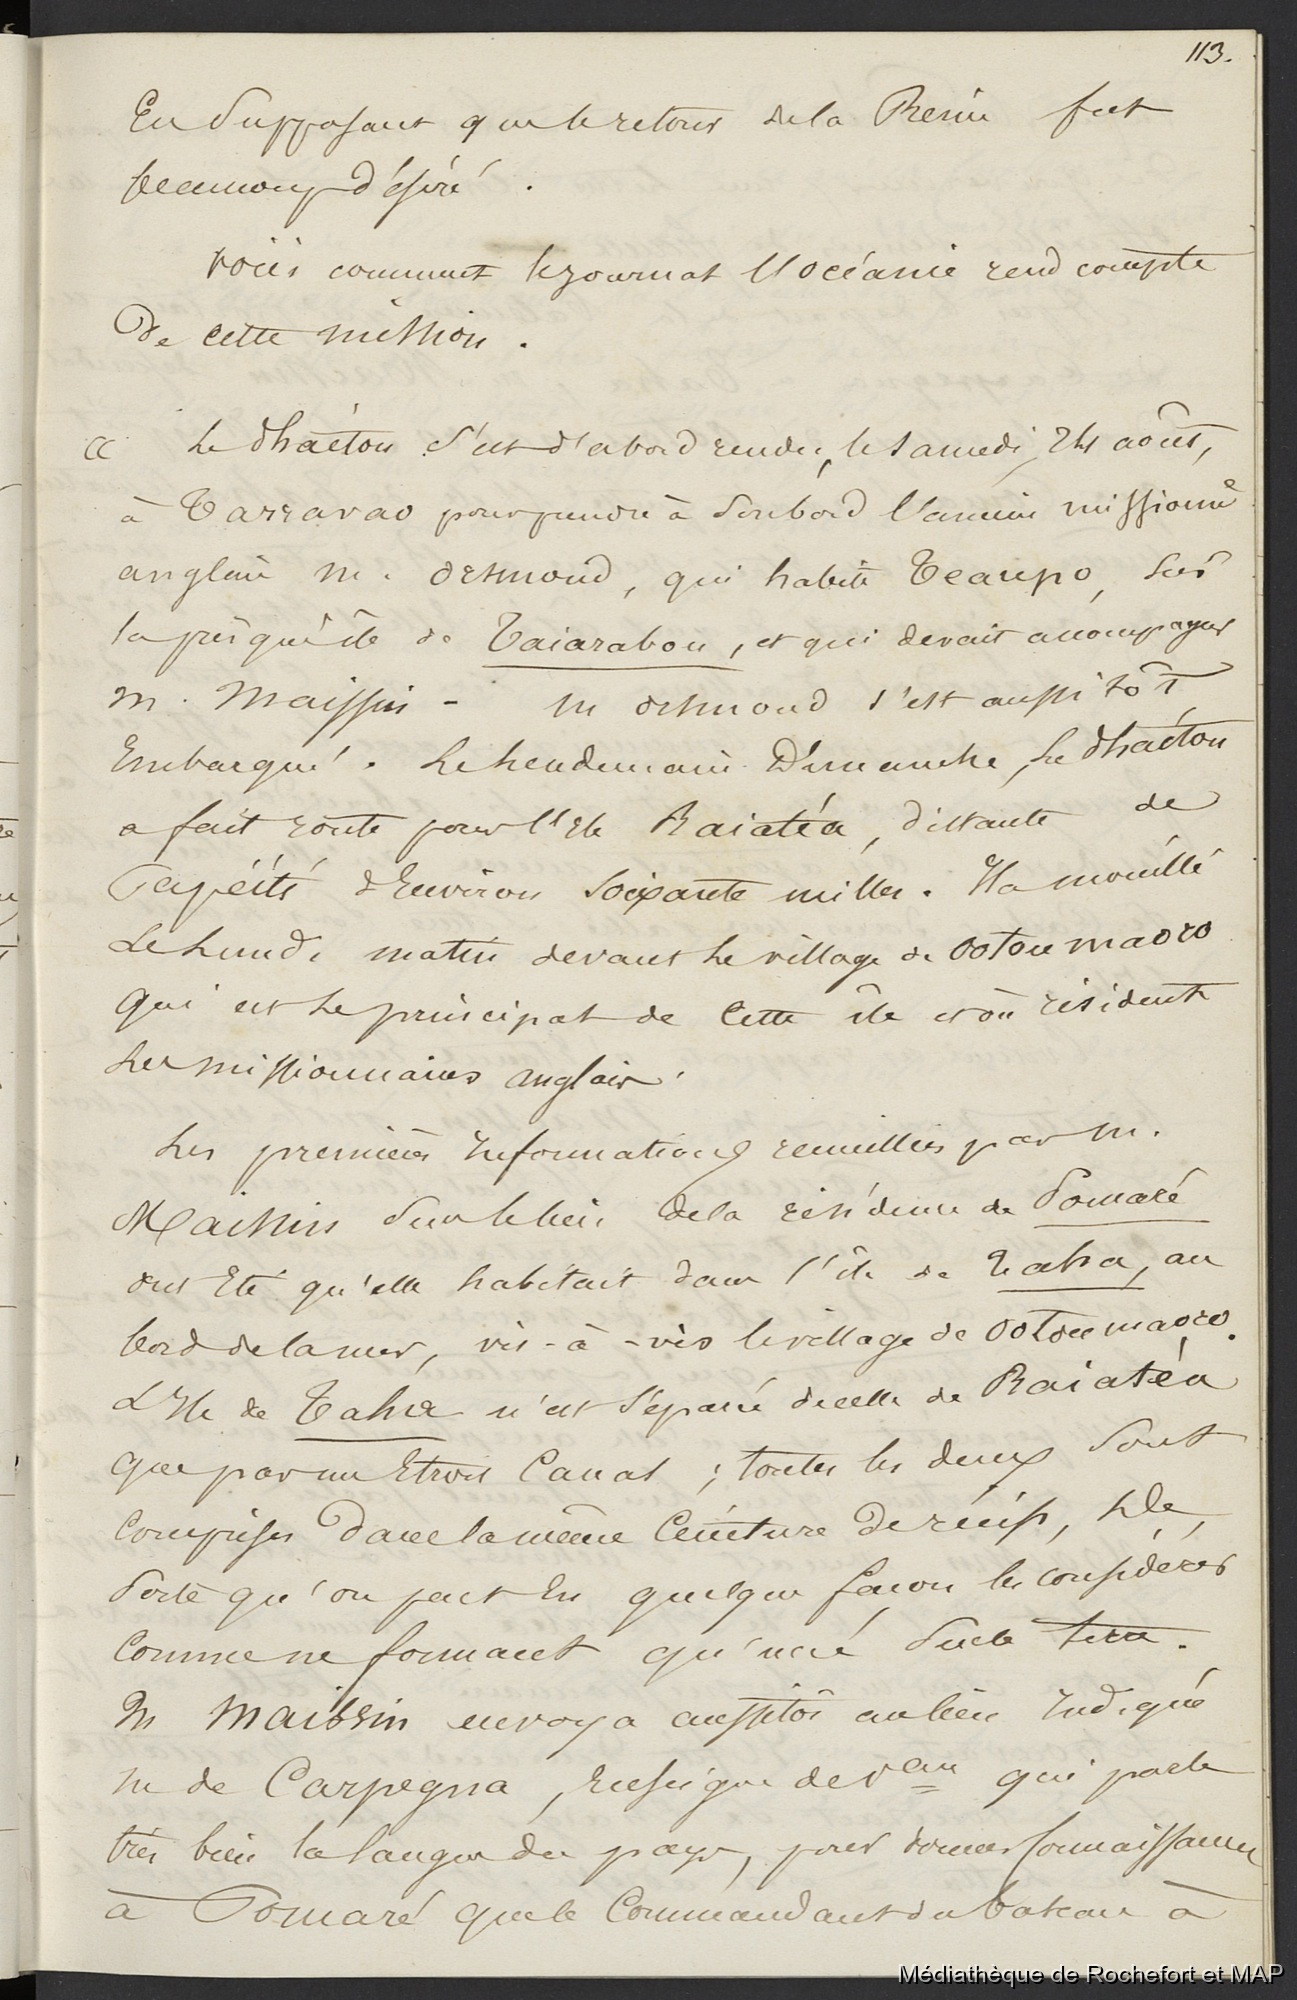 113.
En Supposant que le retour de la Reine fut
beaucoup désiré.
voici comment le journal l'océanie rend compte
De cette mission.
« Le Phaéton s'est d'abord rendu, le samedi, 24 août,
à Tarravao pour prendre à Son bord l'ancien missionre
anglais m. Osmond, qui habite Teaupo, sur
la presqu'île de Taiarabou, et qui devait accompagner
m. Maissin - m osmond s'est aussitôt
Embarqué. Le Lendemain Dimanche, Le Phaéton
a fait route pour l'Ile Raiatéa, distante de
Papéïté d'Environ Soixante milles. Il a mouillé
Le Lundi matin devant Le village de Ootoumaoro
qui est Le principal de Cette île et où résident
Les missionnaires anglais.
Les premières Informations recueillies par m.
Maissin Sur le lieu de la résidence de Pomaré
ont Eté qu'elle habitait dans l'île de Taha, au
bord de la mer, vis-à-vis le village de Ootoumaoro.
L'Ile de Taha n'est Séparé de celle de Raiatéa
que par un Etroit Canal ; toutes les deux Sont
Comprises Dans la même Ceinture De récifs, De
Sorte qu'on peut En quelque façon les considérer
Comme ne formant qu'une Seule terre.
M Maissin envoya aussitôt au lieu Indiqué
m de Carpegna, Enseigne de Vau qui parle
très bien la langue du pays, pour donner Connaissance
à Pomaré que le Commandant du bateau à
Médiathèque de Rochefort et MAP